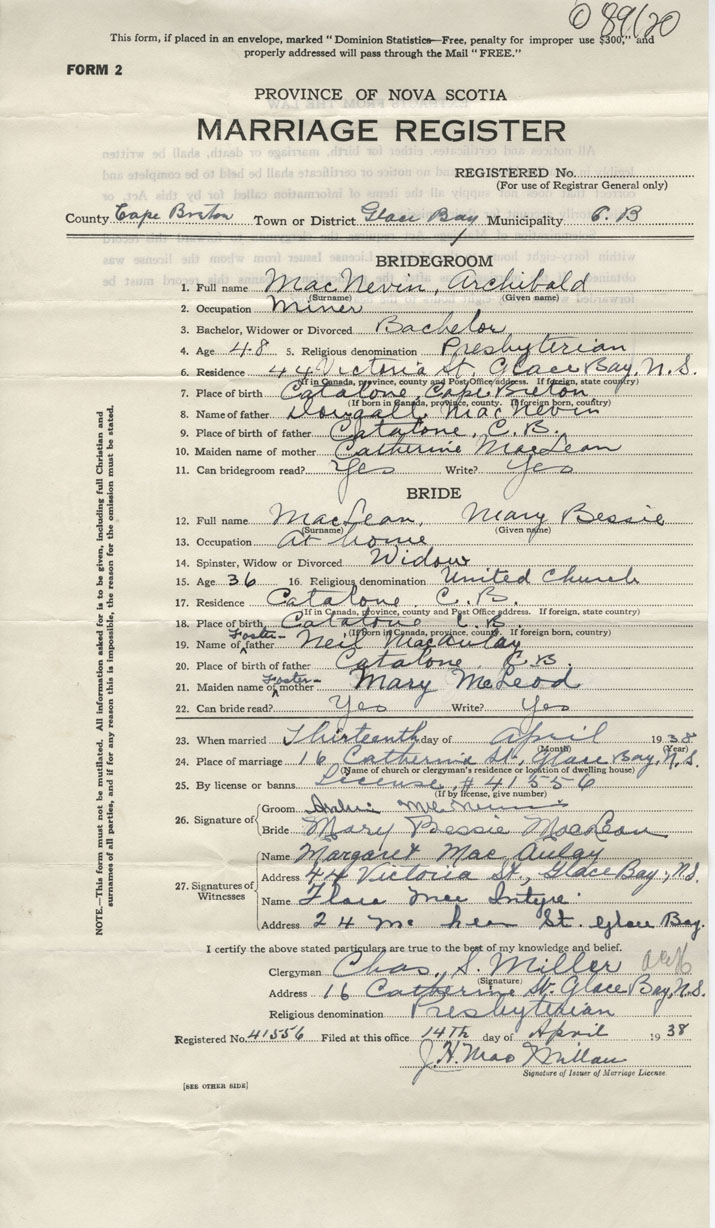 O 89120
This form, if placed in an envelope, marked "Dominion Statistics—Free, penalty for improper use $300," and
properly addressed will pass through the Mail "FREE."
FORM 2
PROVINCE OF NOVA SCOTIA
MARRIAGE REGISTER
REGISTERED No.
(For use of Registrar General only)
County Cape Breton Town or District Glace Bay Municipality C. B
BRIDEGROOM
1. Full name MacNevin, Archibald
(Surname) (Given name)
2. Occupation Miner
3. Bachelor, Widower or Divorced Bachelor
4. Age 48 5. Religious denomination Presbyterian
6. Residence 44 Victoria St. Glace Bay, N.S.
(If in Canada, province, county and Post Office address. If foreign, state country)
7. Place of birth Catalone, Cape Breton
(If born in Canada, province, county. If foreign born, country)
8. Name of father Dougall MacNevin
9. Place of birth of father Catalone, C.B.
10. Maiden name of mother Catherine MacLean
11. Can bridegroom read? Yes Write? Yes
BRIDE
12. Full name MacLean, Mary Bessie
(Surname) (Given name)
13. Occupation At home
14. Spinster, Widow or Divorced Widow
15. Age 36 16. Religious denomination United Church
17. Residence Catalone C.B.
(If in Canada, province, county and Post Office address. If foreign, state country)
18. Place of birth Catalone C.B.
(If born in Canada, province, county. If foreign born, country)
19. Name of Foster-father Neil MacAulay
20. Place of birth of father Catalone C.B.
21. Maiden name of Foster-mother Mary McLeod
22. Can bride read? Yes Write? Yes
23. When married Thirteenth day of April 1938
(Month) (Year)
24. Place of marriage 16 Catherine St. Glace Bay, N.S.
(Name of church or clergyman's residence or location of dwelling house)
25. By license or banns License # 41556
(If by license, give number)
26. Signature of
Groom
Bride Mary Bessie MacLean
27. Signatures of Witnesses
Name Margaret MacAulay
Address 44 Victoria St., Glace Bay, N.S.
Name Flora Mac Intyre
Address 24 St. Glace Bay.
I certify the above stated particulars are true to the best of my knowledge and belief.
Clergyman Chas. S. Miller
(Signature)
Address 16 Catherine St. Glace Bay, N.S.
Religious denomination Presbyterian
Registered No. 41556 Filed at this office 14th day of April 1938
J. H. MacMillan
Signature of Issuer of Marriage License.
[SEE OTHER SIDE]
NOTE.—This form must not be mutilated. All information asked for is to be given, including full Christian and
surnames of all parties, and if for any reason this is impossible, the reason for the omission must be stated.